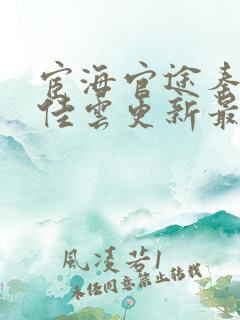 宦海官途秦
佳雲更新最
風淩若1
未经同意禁止转载